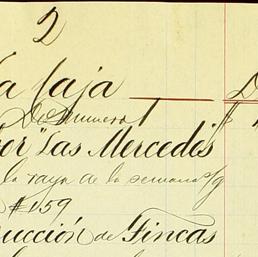 2
a Caja D
De numera 1 $
or "Las Mercedes"
la raya de la semana s/g
#159
ucción de Fincas